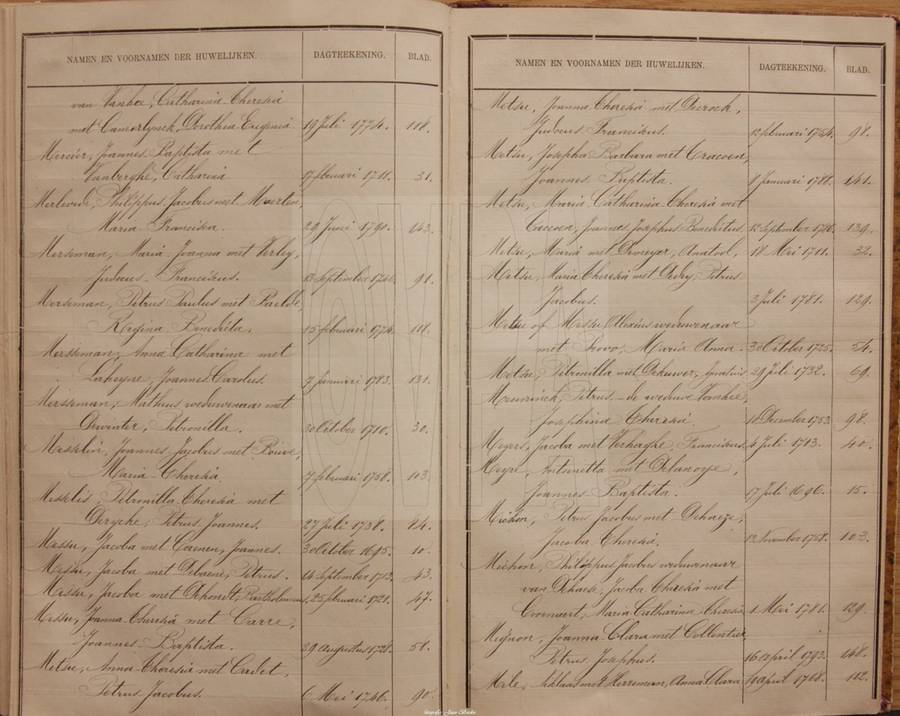 NAMEN EN VOORNAMEN DER HUWELIJKEN. DAGTEEKENING. BLAD.
van Vanhee, Catharina Theresia
met Camerlynck, Dorothea Eugenia 19 Juli 1774. 118.
Mercier, Joannes Baptista met
Vanberghe, Catharina 17 februari 1711. 31.
Philippus Jacobus met
Maria Francisca. 29 Juni 1790. 143.
Merseman, Maria Joanna met Verley,
Judocus Franciscus. 13 September 91.
Merseman, Petrus Paulus met
Regina Benedicta, 15 februari 1774. 118.
Mersseman, Anna Catharina met
Joannes Carolus. 7 Januari 1783. 131.
Merseman, Matheus weduwenaar met
Dewinter, Petronilla. 30 October 1710. 30.
Messelin, Joannes Jacobus met
Maria Theresia 7 februari 1758. 103.
Messelis, Petronilla Theresia met
Derycke, Petrus Joannes. 27 Juli 1738. 84.
Messu, Jacoba met Joannes. 30 October 1695. 10.
Messu, Jacoba met Debaene, Petrus. 14 September 1713. 43.
Messu, Jacoba met Dehondt, Bartholomeus, 25 februari 1721. 47.
Messu, Joanna Theresia met Carre,
Joannes Baptista. 29 augustus 1728. 58.
Metsu, Anna Theresia met
Petrus Jacobus. 6 Mei 1746. 90.
NAMEN EN VOORNAMEN DER HUWELIJKEN. DAGTEEKENING. BLAD.
Metsu, Joanna Theresia met
Judocus Franciscus. 12 februari 1754. 98.
Metsu, Josepha Barbara met
Joannes Baptista. 8 Januari 1788. 141.
Metsu, Maria Catharina Theresia met
Joannes Josephus Benedictus 12 September 1786. 139.
Metsu, Maria met Anatool, 18 Mei 1711. 32.
Metsu, Maria Theresia met Petrus
Jacobus. 3 Juli 1781. 129.
Metsu of Messu Alexius weduwenaar
met Maria Anna. 30 October 1725. 54.
Metsu, Petronilla met Dekuwer, Ignatius 29 Juli 1732. 69.
Meurinck, Petrus de weduwe Vanhee,
Josephina Theresia. 18 December 1753 98.
Meyers, Jacoba met Verhaghe, Franciscus, 4 Juli 1713. 40.
Meyre, Antonetta met Delanoye,
Joannes Baptista. 17 Juli 1696. 15.
Michon, Petrus Jacobus met Dehaeze,
Jacoba Theresia. 12 November 1758. 103.
Michon, Philippus Jacobus weduwenaar
van Jacoba Theresia met
Maria Catharina Theresia 1 Mei 1781. 129.
Mignon, Joanna Clara met Collentier,
Petrus Josephus. 16 april 1793. 148.
met Herreman, Anna Clara 19 april 1768. 112.